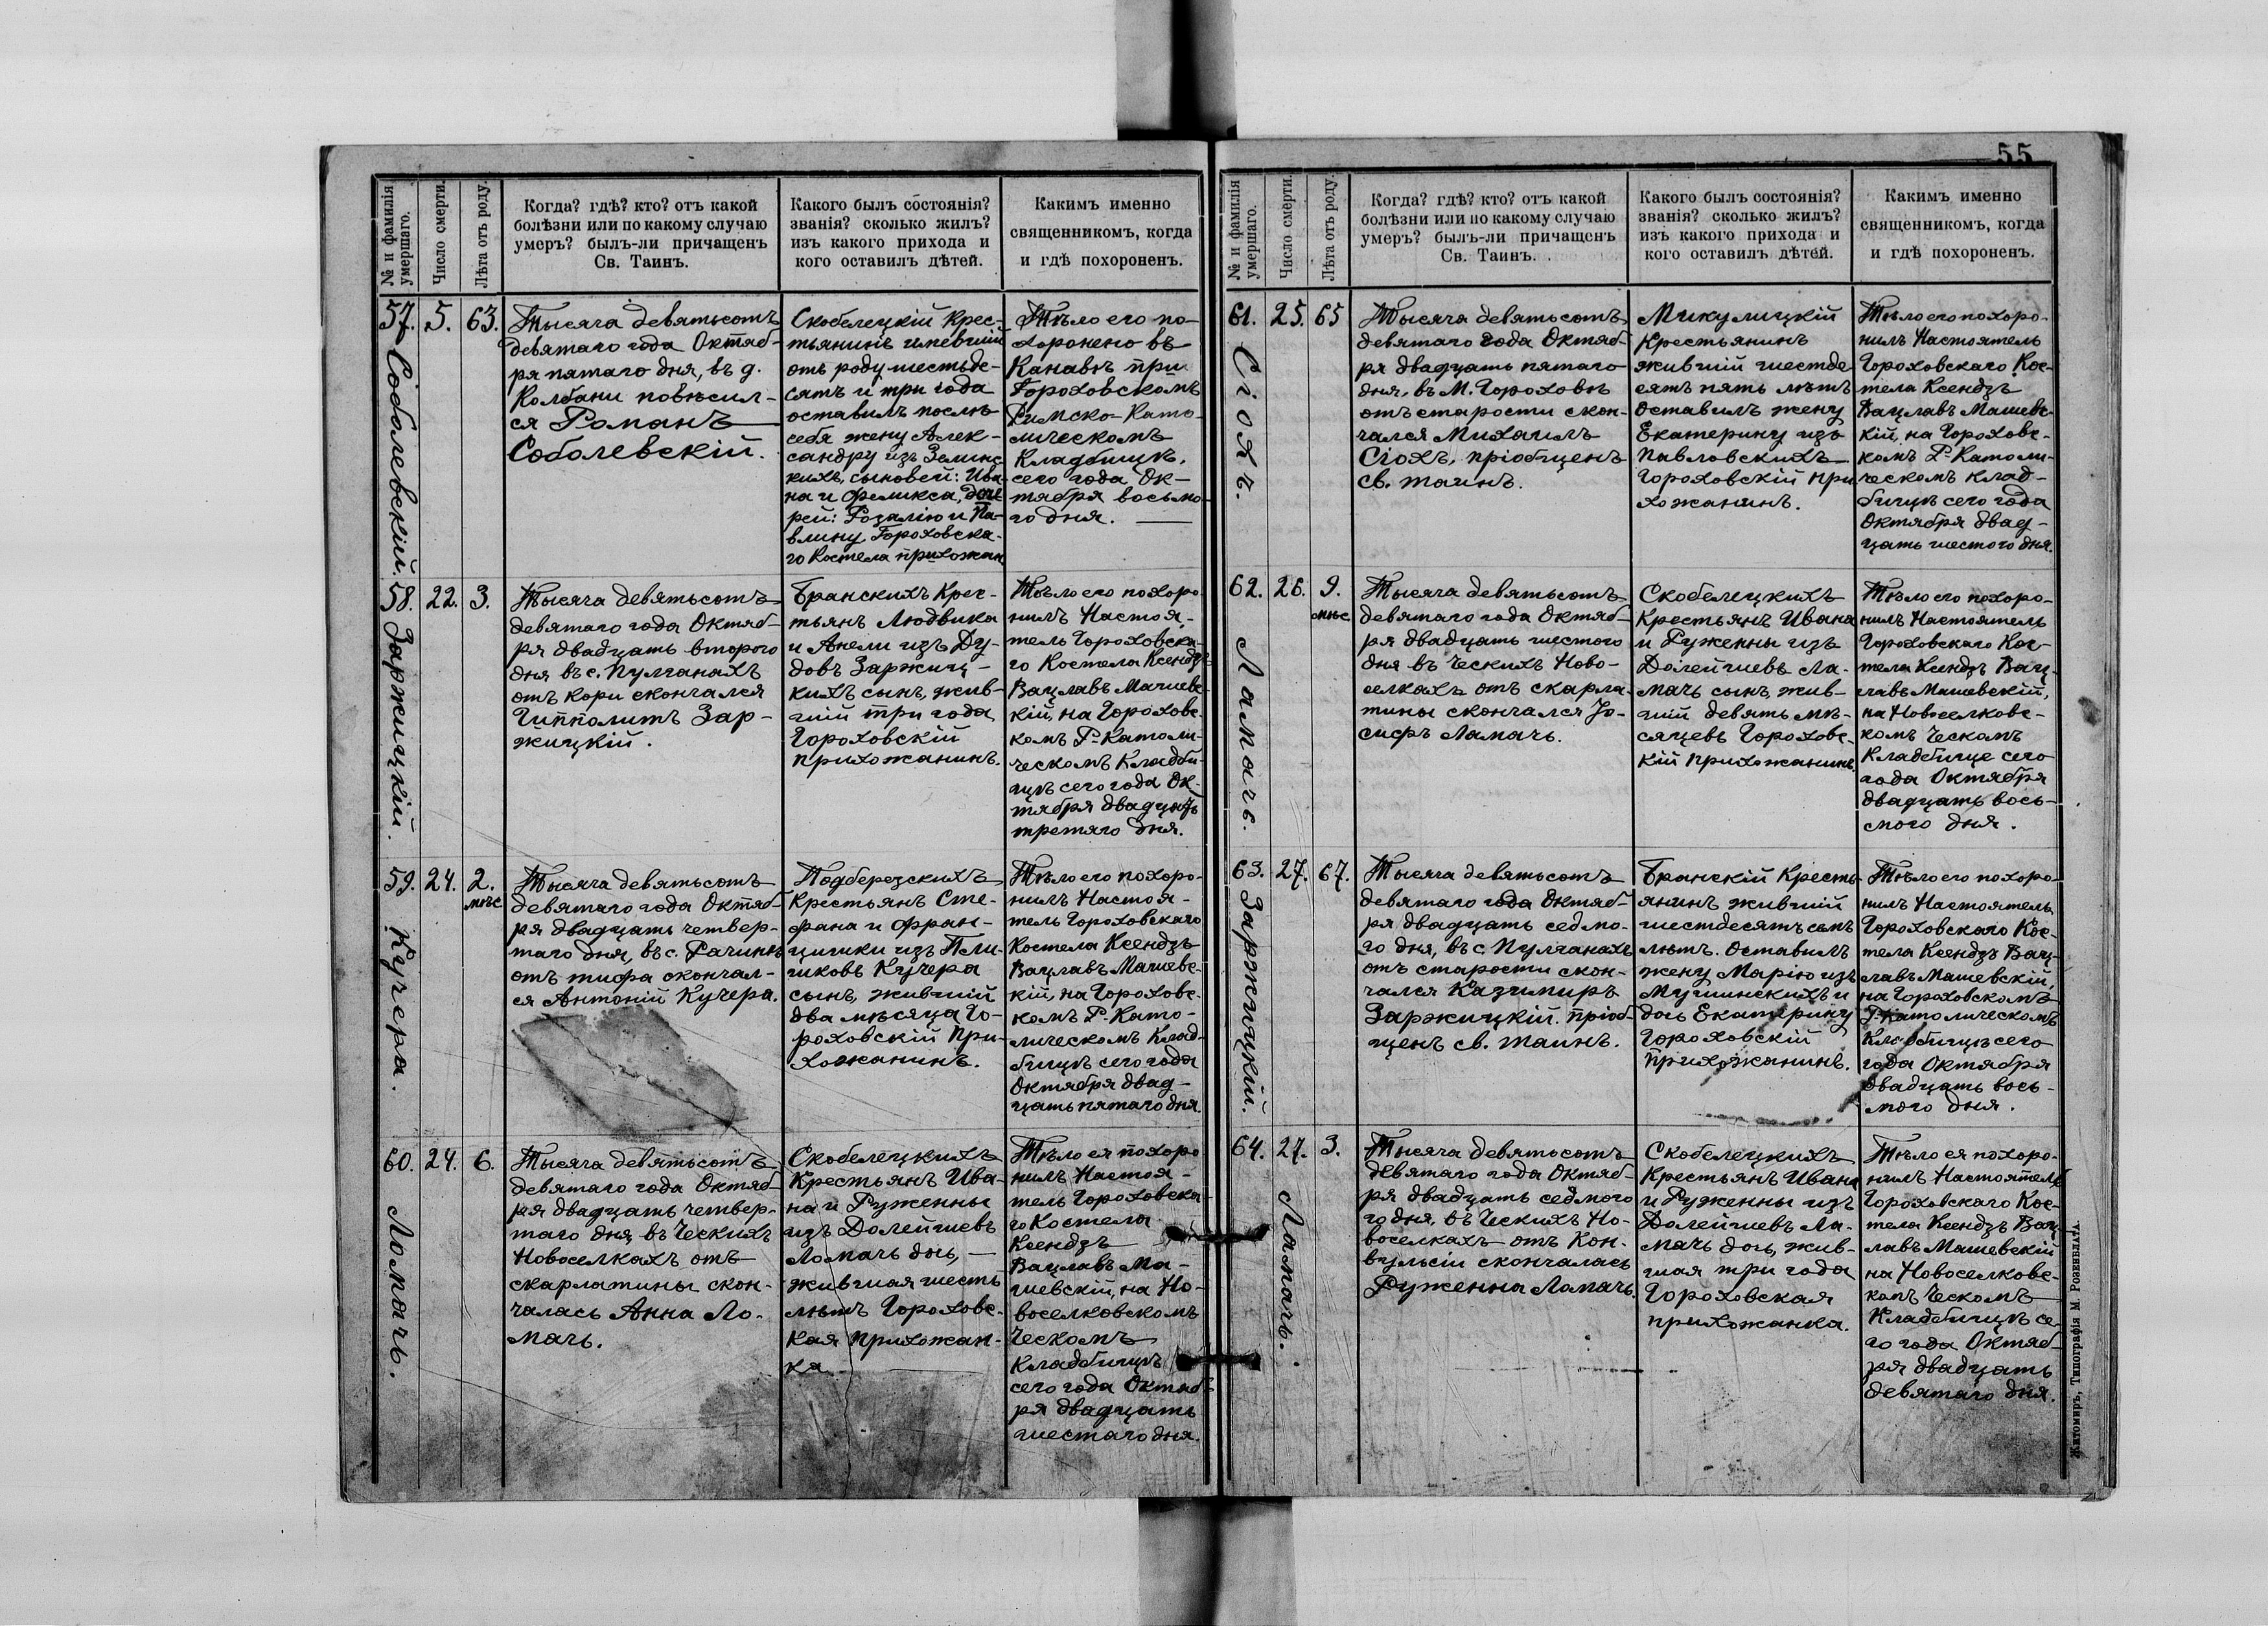 55
№ и фамилія
умершаго.
Число смерти.
Лѣта отъ роду.
Когда? гдѣ? кто? отъ какой
болѣзни или по какому случаю
умеръ? былъ-ли причащенъ
Св. Таинъ.
Какого былъ состоянія?
званія? сколько жилъ?
изъ какого прихода и
кого оставилъ дѣтей.
Какимъ именно
священникомъ, когда
и гдѣ похороненъ.
57.
Соболевскій.
5.
63.
Тысяча девятьсотъ
девятаго года Октяб-
ря пятаго дня, въ д.
Колбани повѣсил-
ся Романъ
Соболевскій.
Скобелецкій крес-
тьянинъ имевшій
отъ роду шестьде-
сятъ и три года
оставилъ послѣ
себя жену Алек-
сандру изъ Зелинс
кихъ, сыновей: Ива-
на и Феликса, доче
рей: Розалію и Па-
влину, Гороховска-
го Костела прихожан
Тѣло его по-
хоронено въ
Канавѣ при
Гороховскомъ
Римско-Като-
лическомъ
Кладбищѣ,
сего года Ок-
тября восьмо-
го дня.
58.
Заржицкій.
22.
3.
Тысяча девятьсотъ
девятаго года Октяб-
ря двадцать второго
дня въ с. Пулганахъ
отъ кори скончался
Гипполитъ Зар-
жицкій.
Бранскихъ Крес-
тьянъ Людвика
и Анели изъ Ду-
довъ Заржиц-
кихъ сынъ, жив-
шій три года
Гороховскій
прихожанинъ.
Тѣло его похоро-
нилъ Настоя-
тель Гороховска-
го Костела Ксендзъ
Вацлавъ Машевс-
кій, на Гороховс-
комъ Р-Католи-
ческомъ Кладби-
щѣ сего года Ок-
тября двадцать
третяго дня.
59.
Кучера.
24.
2.
мѣс.
Тысяча девятьсотъ
девятаго года Октяб-
ря двадцать четвер-
таго дня, въ с. Рачинѣ
отъ тифа скончал-
ся Антоній Кучера.
Подберезскихъ
Крестьянъ Сте-
фана и Фран-
цишки изъ
Кучера
сынъ, жившій
два мѣсяца Го-
роховскій При-
хожанинъ.
Тѣло его похоро-
нилъ Настоя-
тель Гороховскаго
Костела Ксендзъ
Вацлавъ Машевс-
кій, на Гороховс-
комъ Р-Като-
лическомъ Клад-
бищѣ сего года
Октября двад-
цать пятаго дня.
60.
Ломачъ.
24.
6.
Тысяча девятьсотъ
девятаго года Октяб-
ря двадцать четвер-
таго дня въ Ческихъ
Новоселкахъ отъ
скарлатины скон-
чалась Анна Ло-
мачь.
Скобелецкихъ
Крестьянъ Ива-
на и Руженны
изъ Долейшевъ
Ломачь дочь,
жившая шесть
лѣтъ Гороховс-
кая прихожан-
ка.
Тѣло ея похоро-
нилъ Настоя-
тель Гороховска-
го Костела
Ксендзъ
Вацлавъ Ма-
шевскій, на Но-
воселковскомъ
Ческомъ
Кладбищѣ
сего года Октяб-
ря двадцать
шестаго дня.
№ и фамилія
умершаго.
Число смерти.
Лѣта отъ роду.
Когда? гдѣ? кто? отъ какой
болѣзни или по какому случаю
умеръ? былъ-ли причащенъ
Св. Таинъ.
Какого былъ состоянія?
званія? сколько жилъ?
изъ какого прихода и
кого оставилъ дѣтей.
Какимъ именно
священникомъ, когда
и гдѣ похороненъ.
61.
Сіохъ.
25.
65
Тысяча девятьсотъ
девятаго года Октяб-
ря двадцать пятаго
дня, въ М. Гороховѣ
отъ старости скон-
чался Михаилъ
Сіохъ, пріобщенъ
св. таинъ.
Микулицкій
Крестьянинъ
жившій шестьде
сятъ пять лѣтъ
Оставилъ жену
Екатерину изъ
Павловскихъ
Гороховскій при
хожанинъ.
Тѣло его похоро-
нилъ Настоятель
Гороховскаго Кос-
тела Ксендзъ
Вацлавъ Машевс-
кій, на Гороховс-
комъ Р-Католи-
ческомъ Клад-
бищѣ сего года
Октября двад-
цать шестого дня.
62.
Ламачь.
26.
9.
мѣс.
Тысяча девятьсотъ
девятаго года Октяб-
ря двадцать шестого
дня въ Ческихъ Ново-
селкахъ отъ скарла-
тины скончался Іо-
сифъ Ламачь.
Скобелецкихъ
Крестьянъ Ивана
и Руженны изъ
Долейшевъ Ла-
мачь сынъ, жив-
шій девять мѣ-
сяцевъ Гороховс-
кій прихожанинъ.
Тѣло его похоро-
нилъ Настоятель
Гороховскаго Кос-
тела Ксендзъ Вац-
лавъ Машевскій,
на Новоселковс-
комъ Ческомъ
Кладбище сего
года Октября
двадцать вось-
мого дня.
63.
Заржицкій.
27.
67.
Тысяча девятьсотъ
девятаго года Октяб-
ря двадцать седмо-
го дня, въ с. Пулганахъ
отъ старости скон-
чался Казимиръ
Заржицкій. Пріоб-
щенъ св. таинъ.
Бранскій Кресть-
янинъ жившій
шестдесятъ семь
лѣтъ. Оставилъ
жену Марію изъ
Мушинскихъ и
дочь Екатерину
Гороховскій
Прихожанинъ.
Тѣло его похоро-
нилъ Настоятель
Гороховскаго Кос-
тела Ксендзъ Вац-
лавъ Машевскій,
на Гороховскомъ
Р-Католическомъ
Кладбищѣ сего
года Октября
двадцать вось-
мого дня.
64.
Ламачь.
27.
3.
Тысяча девятьсотъ
девятаго года Октяб-
ря двадцать седмого
го дня, въ Ческихъ Но-
воселкахъ отъ Кон-
вульсіи скончалась
Руженна Ламачь.
Скобелецкихъ
Крестьянъ Ивана
и Руженны изъ
Долейшевъ Ла-
мачь дочь, жив-
шая три года
Гороховская
прихожанка.
Тѣло ея похоро-
нилъ Настоятель
Гороховскаго Кос-
тела Ксендзъ Вац-
лавъ Машевскій
на Новоселковс-
комъ Ческомъ
Кладбищѣ се-
го года Октяб-
ря двадцать
девятаго дня.
Житомиръ, Типографія М. Розенблатъ.